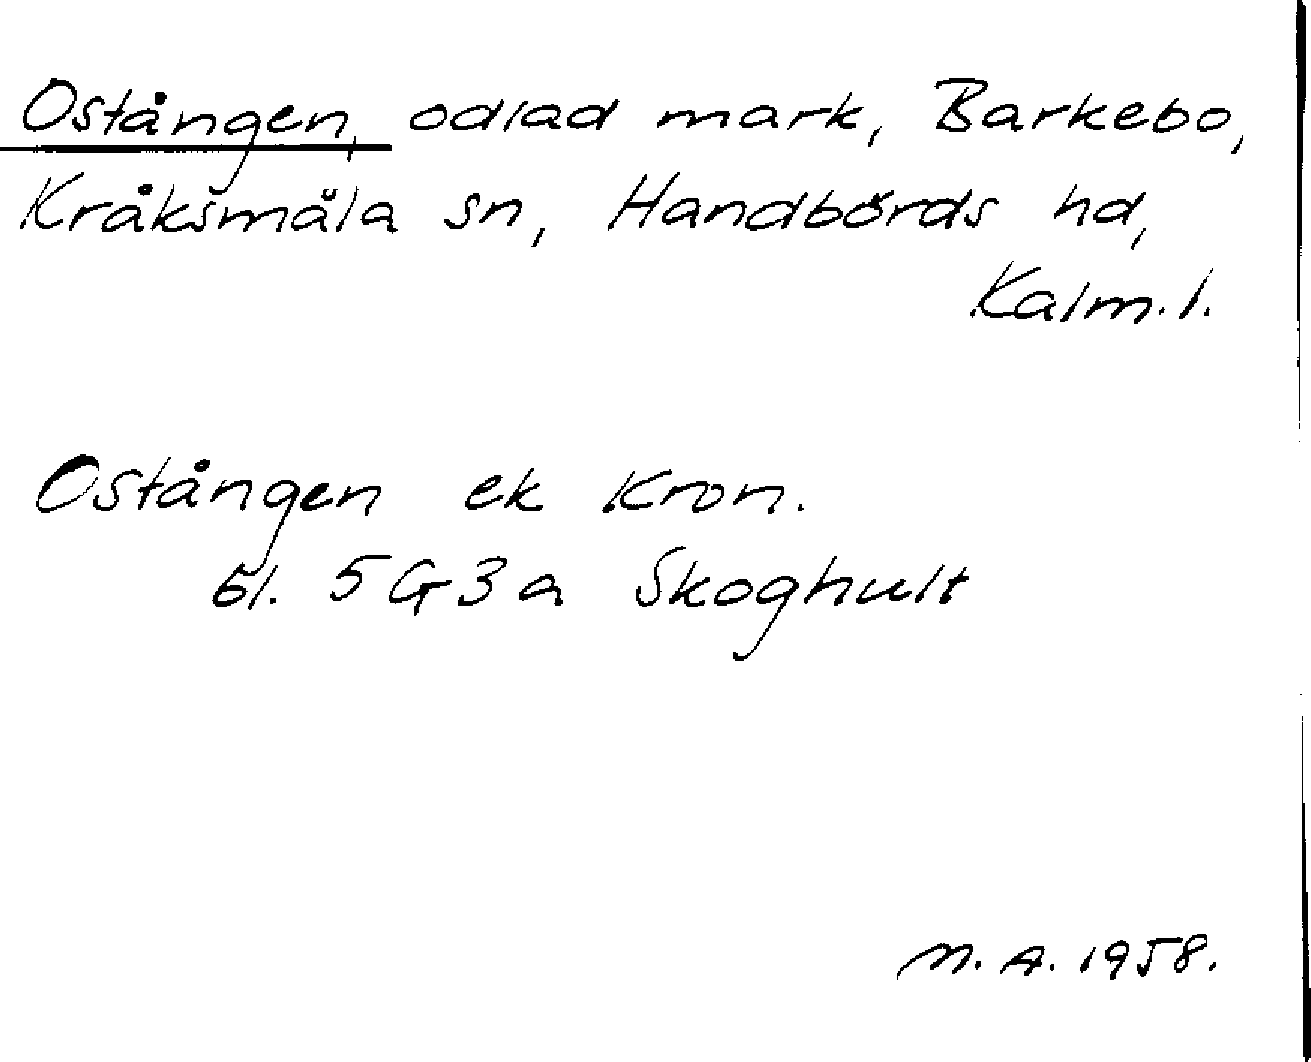 Ostången, odlad mark, Barkebo,
Kråksmåla sn, Handbörds hd,
Kalm.l.
Ostången ek Kron.
bl. 5G3a Skoghult
M.A. 1958.